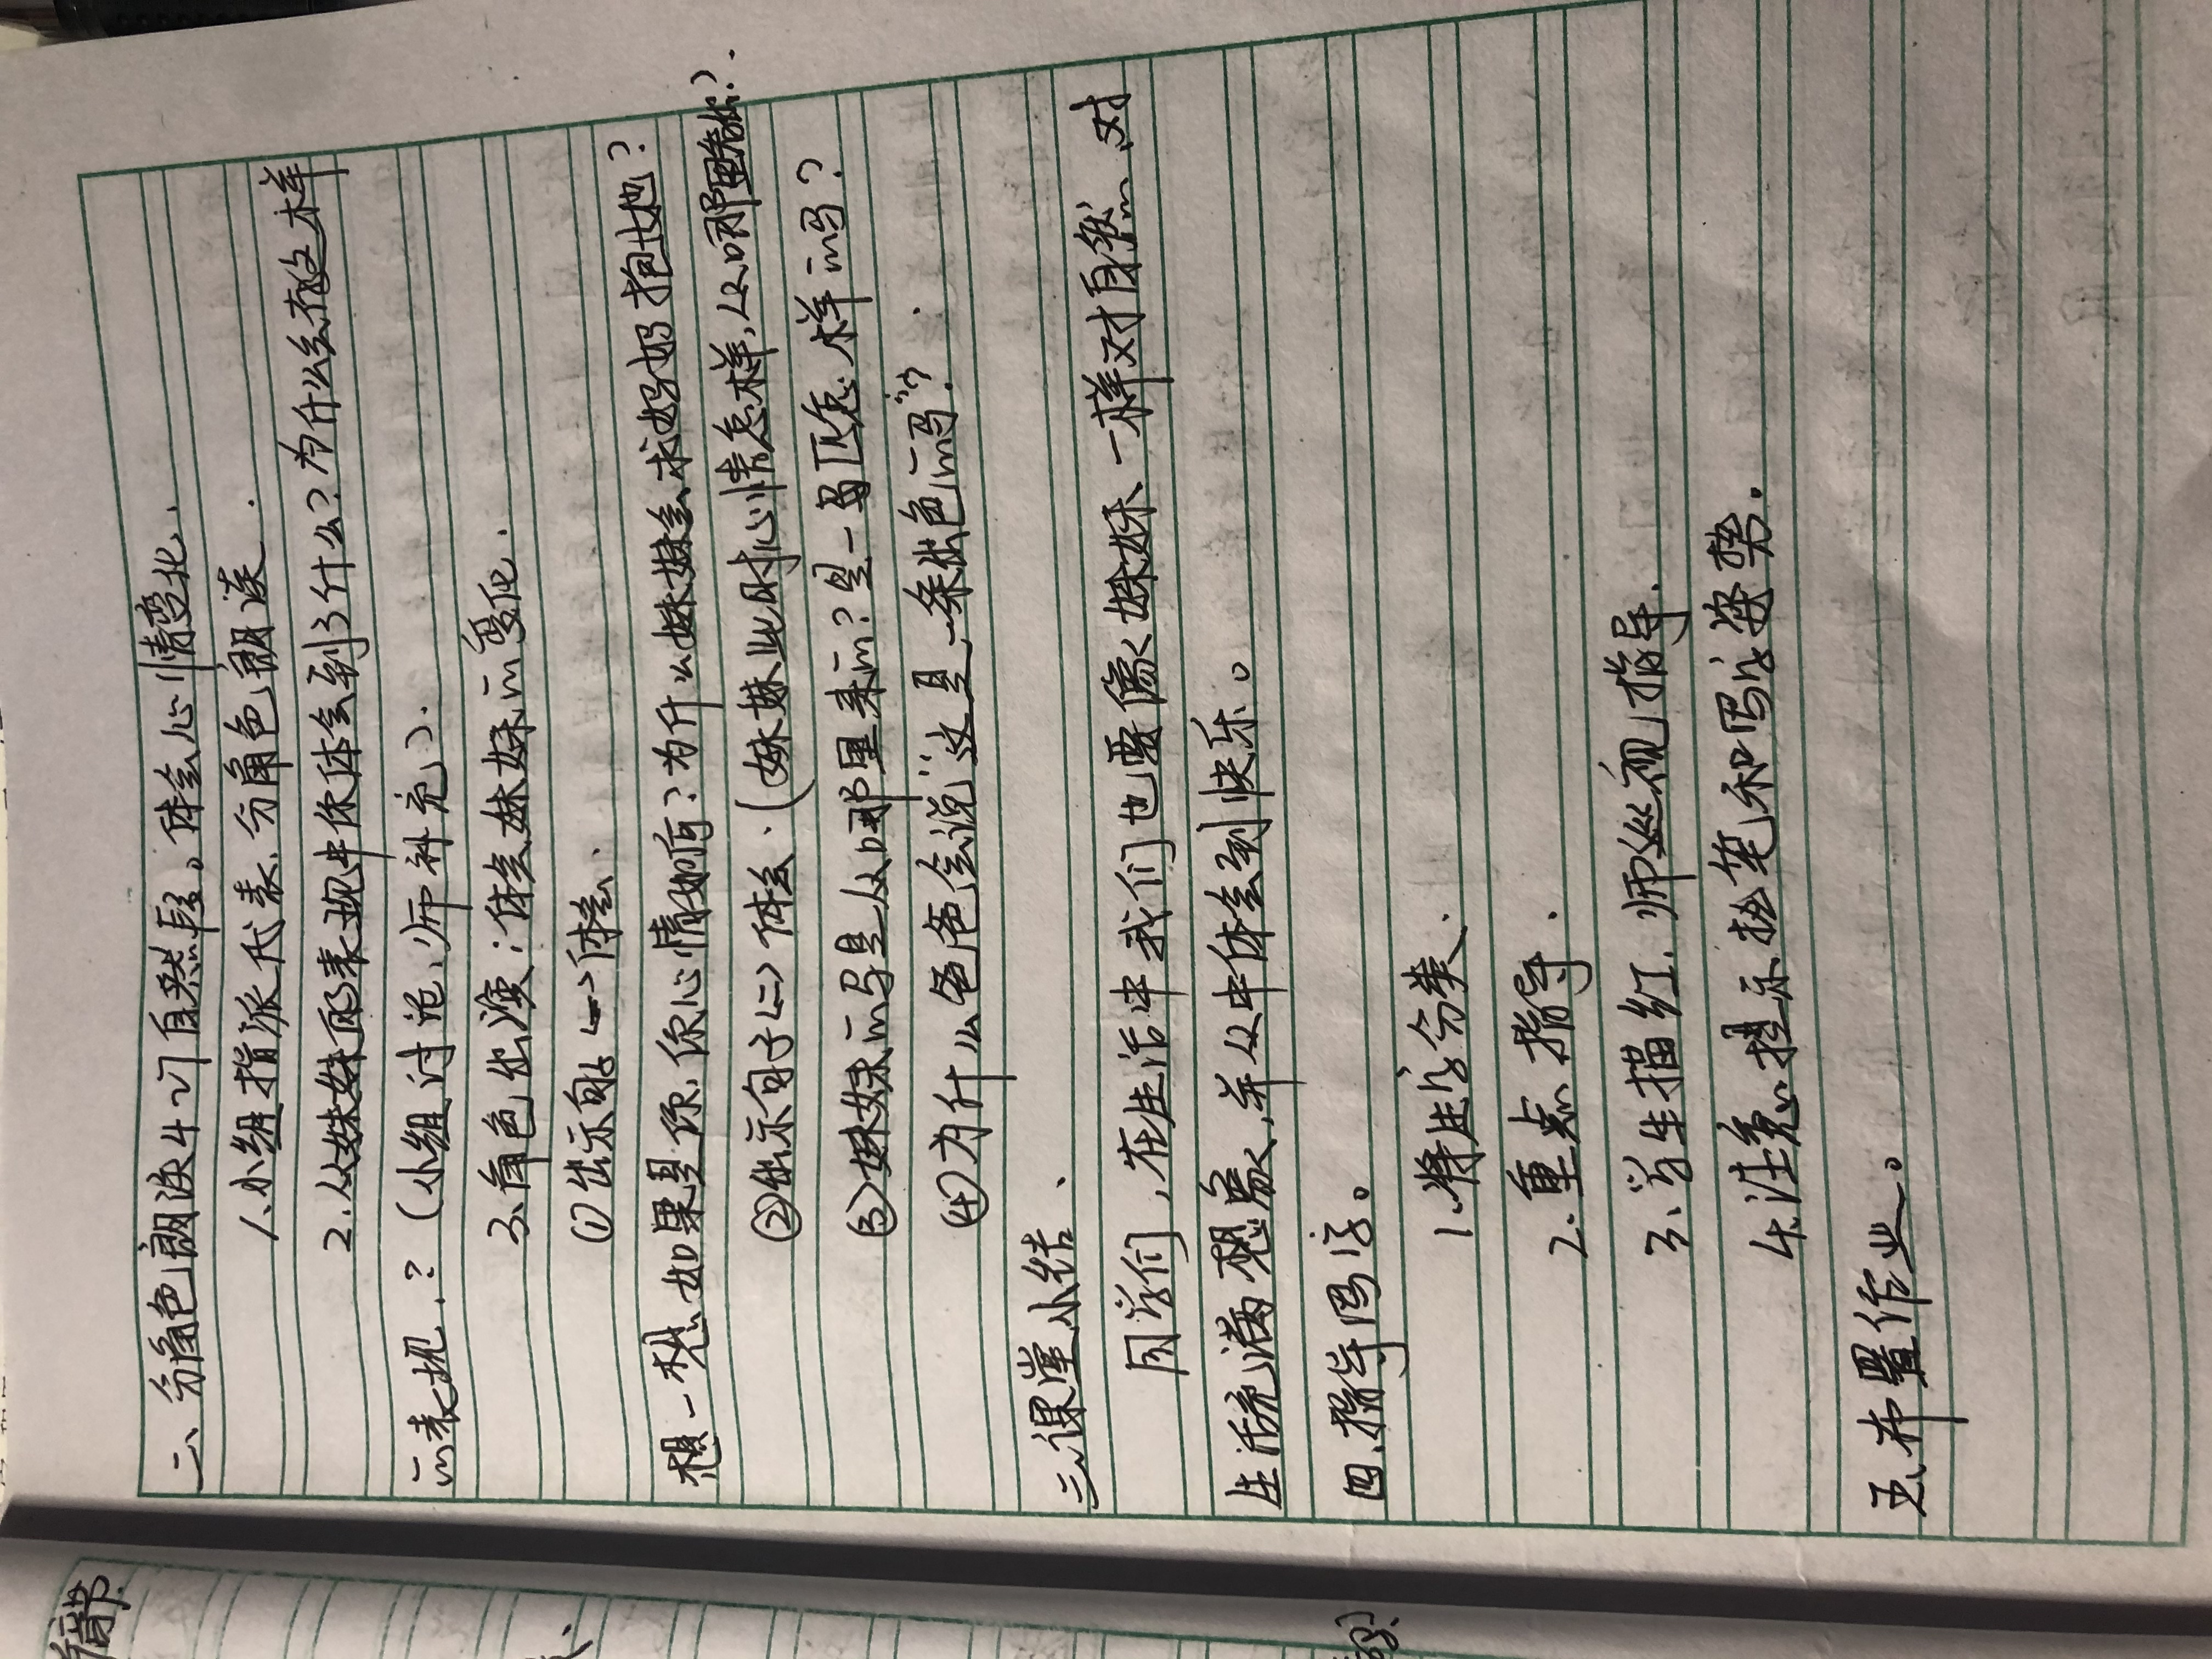 二、分角色朗读4-7自然段。体会心情变化、
1、小组指派代表、分角色朗读.
2.从妹妹的表现中你体会到了什么?为什么会有这样
的表现.?(小组讨论、师补充).
3、角色出演:体会妹妹的变化.
①出示句子<一>体会.
想一想如果是你,你心情如何?为什么妹妹会求妈妈抱她?
②出示句子<二>体会.(妹妹此时心情怎样,从哪里看出?).
③妹妹的马是从哪里来的?是一匹怎样的马?
④为什么爸爸会说“这是一条出色的马”?.
三、课堂小结、
同学们,在生活中我们也要像妹妹一样对自然、对
生活充满想象,并从中体会到快乐。
四、指导写字。
1.将生字分类.
2.重点指导.
3、学生描红.师巡视指导.
4.注意提示执笔和写字姿势.
五、布置作业。